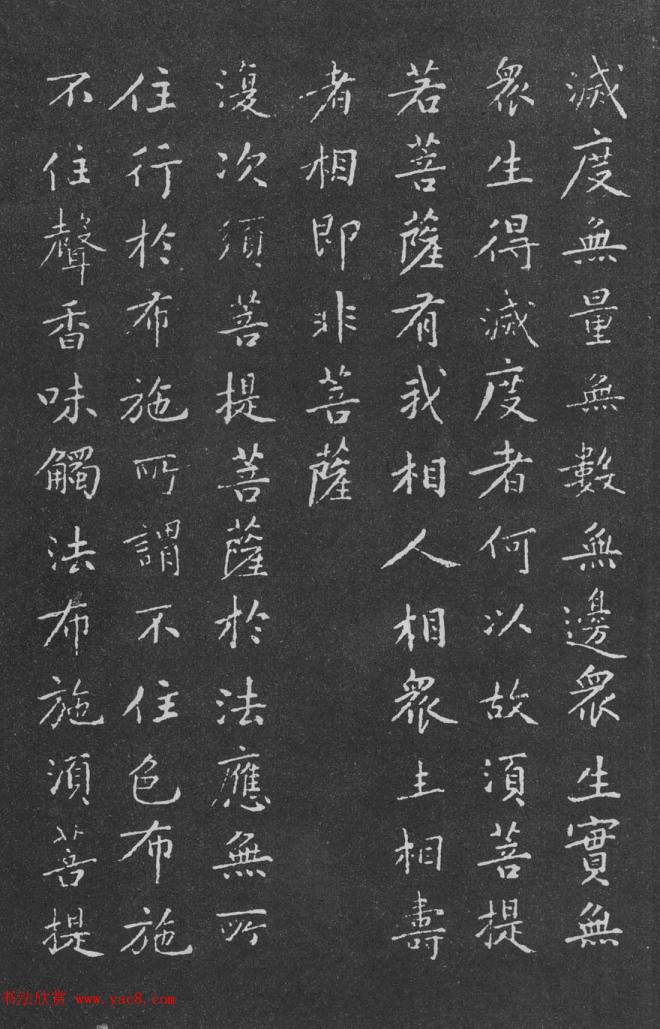 滅度無量無數無邊眾生實無
眾生得滅度者何以故須菩提
若菩薩有我相人相眾生相壽
者相即非菩薩
復次須菩提菩薩於法應無所
住行於布施所謂不住色布施
不住聲香味觸法布施須菩提
书法欣赏 www.yac8.com